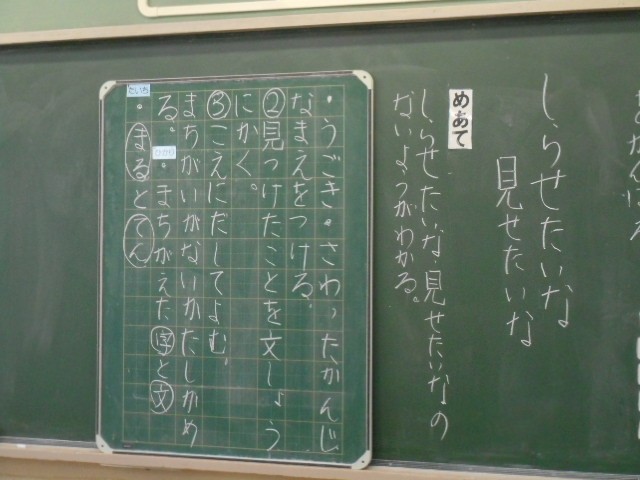 しらせたいな
見せたいな
めあて
しらせたいな、見せたいなの
ないようがわかる。
・うごき・さわったかんじ
なまえをつける。
②見つけたことを文しょう
にかく。
③こえにだしてよむ。
まちがいがないかたしかめ
る。・まちがえた字と文
たいち
・まるとてん